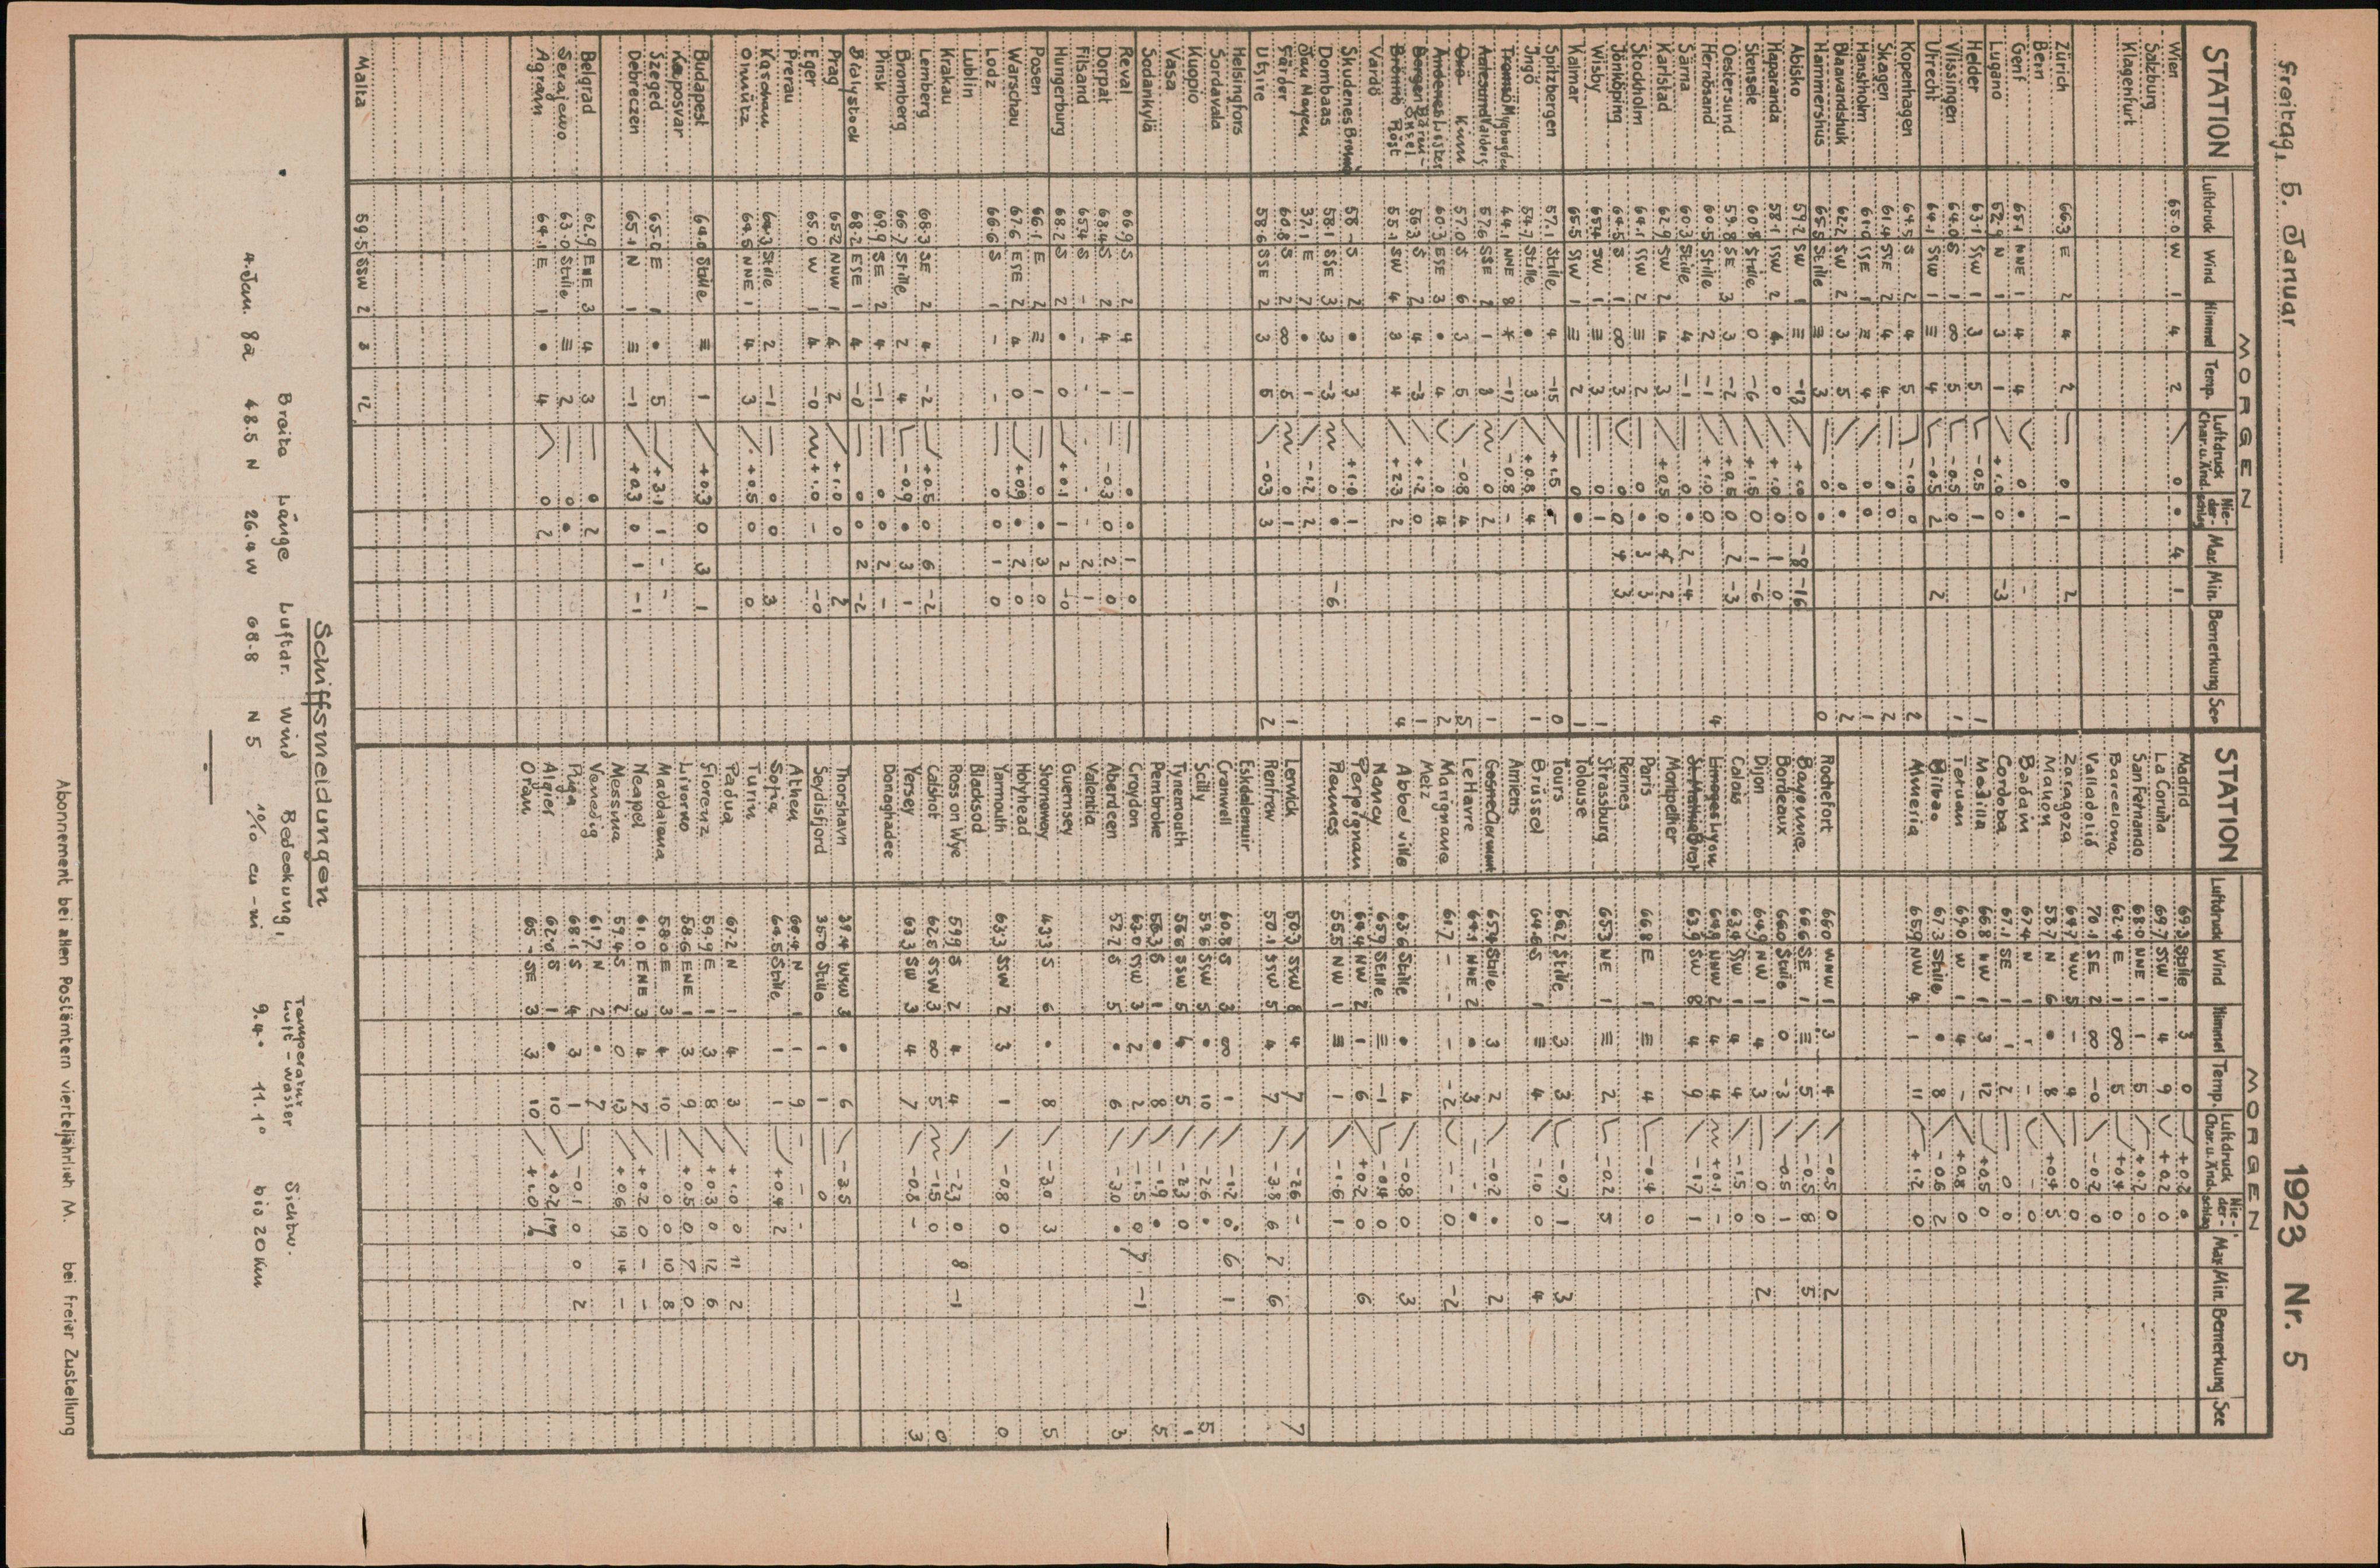 Freitag, 5. Januar
1923 Nr. 5
MORGEN
STATION Luftdruck Wind Himmel Temp. Luftdruck Char. u. Änd. Nie-der-schlag Max. Min. Bemerkung See
Wien 65.0 W 1 4 2 0 • 4 1
Salzburg
Klagenfurt
Zürich 66.3 E 2 4 2 0 1 2
Bern
Genf 65.1 NNE 1 4 4 0 • -
Lugano 52.9 N 1 3 1 +1.0 0 -3
Helder 63.1 SSW 1 3 5 -0.5 1 1
Vlissingen 64.0 S 1 ∞ 5 -0.5 0 1
Utrecht 64.1 SSW 1 ≡ 4 -0.5 2 2
Kopenhagen 64.5 S 2 4 5 -1.0 0 2
Skagen 61.4 SSE 2 4 4 0 0 2
Hanstholm 61.0 SSE 1 ≡ 4 0 0 1
Blaavandshuk 62.2 SW 2 3 5 0 • 2
Hammershus 65.5 Stille ≡ 3 0 • 0
Abisko 59.2 SW 1 ≡ -13 +1.0 0 -8 -16
Haparanda 58.1 SSW 2 4 0 +1.0 0 1 0
Stensele 60.8 Stille 0 -6 +1.5 0 1 -6
Oestersund 59.8 SE 3 3 -2 +0.5 0 2 -3
Hernösand 60.5 Stille 2 -1 +1.0 0
Särna 60.3 Stille 4 -1 0 • 2 -4
Karlstad 62.9 SW 2 4 3 +0.5 0 4 2
Stockholm 64.1 SSW 2 ≡ 2 0 • 3 3
Jönköping 64.5 S 1 ∞ 3 0 0 4 3
Wisby 65.4 SW 1 ≡ 3 0 1 1
Kalmar 65.5 SSW 1 ≡ 2 0 • 1
Spitzbergen 57.1 Stille 4 -15 +1.5 - 0
Ingö 54.7 Stille • 3 +0.8 4 1
Tromsö Myggbugden 44.1 NNE 8 * -17 -0.8 -
Aalesund Valders 57.6 SSE 2 1 3 0 2 1
Kinn 57.0 S 6 3 5 -0.8 4 5
Andenes Lister 60.3 ESE 3 • 4 0 4 2
Bergen Bären-Insel 56.3 S 2 4 -3 +1.2 0 1
Brönnö Röst 55.1 SW 4 3 4 +2.3 2 4
Vardö
Skudenes 58.-S 2 • 3 +1.0 1
Dombaas 58.1 SSE 3 3 -3 0 • -6
Jan Mayen 37.1 E 7 • 1 -1.2 2
Färder 60.8 S 2 ∞ 5 0 1 1
Utsire 58.6 SSE 2 3 6 -0.3 3 2
Helsingfors
Sordavala
Kuopio
Vasa
Sodankylä
Reval 66.9 S 2 4 1 0 0 1 0
Dorpat 68.4 S 2 4 1 -0.3 0 2 0
Filsand 65.4 S - - - - - 2 1
Hungerburg 68.2 S 2 • 0 +0.1 1 2 -0
Posen 66.1 E 2 ≡ 1 0 • 3 0
Warschau 67.6 ESE 2 4 0 +0.9 • 2 0
Lodz 66.6 S 1 - - 0 0 1 0
Lublin
Krakau
Lemberg 68.3 SE 2 4 -2 +0.5 0 6 -2
Bromberg 66.7 Stille 2 4 -0.9 • 3 1
Pinsk 69.9 SE 2 4 -1 0 0 2 -
Bialystock 68.2 ESE 1 4 -0 0 0 2 -2
Prag 65.2 NNW 1 6 2 +1.0 0 2
Eger 65.0 W 1 4 -0 +1.0 - -0
Prerau
Kaschau 64.3 Stille 2 -1 0 0 3
Olmütz 64.5 NNE 1 4 3 +0.5 0 0
Budapest 64.0 Stille ≡ 1 +0.3 0 3 1
Kaposvar
Szeged 65.0 E 1 • 5 +3.1 1 - -
Debreczen 65.1 N 1 ≡ -1 +0.3 0 1 -1
Belgrad 62.9 ENE 3 4 3 0 2
Serajewo 63.0 Stille ≡ 2 0 •
Agram 64.1 E 1 • 4 0 2
Malta 59.5 SSW 2 3 12
MORGEN
STATION Luftdruck Wind Himmel Temp. Luftdruck Char. u. Änd. Nie-der-schlag Max. Min. Bemerkung See
Madrid 69.3 Stille 3 0 +0.2 •
La Coruña 69.7 SSW 1 4 9 +0.2 0
San Fernando 68.0 NNE 1 1 5 +0.2 0
Barcelona 62.4 E 1 ∞ 5 +0.4 0
Valladolid 70.1 SE 2 ∞ -0 -0.2 0
Zaragoza 64.7 NW 5 - 4 0 0
Mahon 58.7 N 6 • 8 +0.4 5
Badajn 67.4 N 1 - - - 0
Cordoba 67.1 SE 1 1 2 0 0
Melilla 66.8 NW 1 3 12 +0.5 0
Tetuan 69.0 W 1 4 - +0.8 0
Bilbao 67.3 Stille • 8 -0.6 2
Almeria 65.9 NW 4 1 11 +1.2 0
Rochefort 66.0 WNW 1 3 4 -0.5 0 2
Bayonne 66.6 SE 1 ≡ 5 -0.5 8 5
Bordeaux 66.0 Stille 0 -3 -0.5 1
Dijon 64.9 NW 1 4 3 0 0 2
Calais 63.4 SSW 1 4 4 -1.5 0
Limoges Lyon 64.8 NNW 2 4 4 +0.1 -
St. Mathieu Brest 63.9 SW 8 4 9 -1.7 1
Montpellier
Paris 66.8 E 1 ≡ 4 -0.4 0
Rennes
Strassburg 65.3 NE 1 ≡ 2 -0.2 5
Tolouse
Tours 66.2 Stille 3 3 -0.7 1 3
Brüssel 64.6 S 1 ≡ 4 -1.0 0 4
Amiens
Clermont 65.4 Stille 3 2 -0.2 • 2
Le Havre 64.1 NNE 2 • 3 - •
Marignane 61.7 - - - -2 - 0 -2
Metz
Abbeville 63.6 Stille • 4 -0.8 0 3
Nancy 65.9 Stille ≡ -1 -0.4 0
Perpignan 64.4 NW 2 1 6 +0.2 0 6
55.5 NW 1 ≡ 1 -1.6 1
Lerwick 50.3 SSW 8 4 7 -2.6 - 7
Renfrew 50.1 SSW 5 4 7 -3.8 6 7 6
Eskdalemuir
Cranwell 60.8 S 3 ∞ 1 -1.2 0 6 1
Scilly 59.6 SSW 5 • 10 -2.6 • 5
Tynemouth 56.6 SSW 5 4 5 -2.3 0 1
Pembroke 56.3 S 1 • 8 -1.9 • 5
Croydon 63.0 SSW 3 2 2 -1.5 0 7 -1
Aberdeen 52.2 S 5 • 6 -3.0 • 3
Valentia
Guernsey
Stornoway 43.3 S 6 • 8 -3.0 3 5
Holyhead
Yarmouth 63.3 SSW 2 3 1 -0.8 0 0
Blacksod
Ross on Wye 59.9 S 2 4 4 -2.3 0 8 -1
Calshot 62.5 SSW 3 ∞ 5 -1.5 0 0
Yersey 63.3 SW 3 4 7 -0.8 - 3
Donaghadee
Thorshavn 39.4 WSW 3 • 6 -3.5
Seydisfjord 35.0 Stille 1 1 0
Athen 60.4 N 1 1 9 - -
Sofia 64.5 Stille 1 1 +0.4 2
Turin
Padua 67.2 N 1 4 3 +1.0 0 11 2
Florenz 59.9 E 1 3 8 +0.3 0 12 6
Livorno 58.6 ENE 1 3 9 +0.5 0 7 0
Maddalena 58.0 E 3 4 10 0 0 10 8
Neapel 61.0 ENE 3 4 7 +0.2 0 - -
Messina 59.4 S 2 0 13 +0.6 19 14 -
Venedig 61.7 N 2 • 7
Riga 68.1 S 4 3 1 -0.1 0 0 2
Algier 62.0 S 1 • 10 +0.2 19
Oran 65.- SE 3 3 10 +1.0 4
Schiffsmeldungen
Breite Länge Luftdr. Wind Bedeckung, Temperatur Luft - Wasser Sichtw.
4. Jan. 8a 48.5 N 26.4 W 68.8 N 5 10/10 cu-ni 9.4° 11.1° bis 20 km
Abonnement bei allen Postämtern vierteljährlich M. bei freier Zustellung